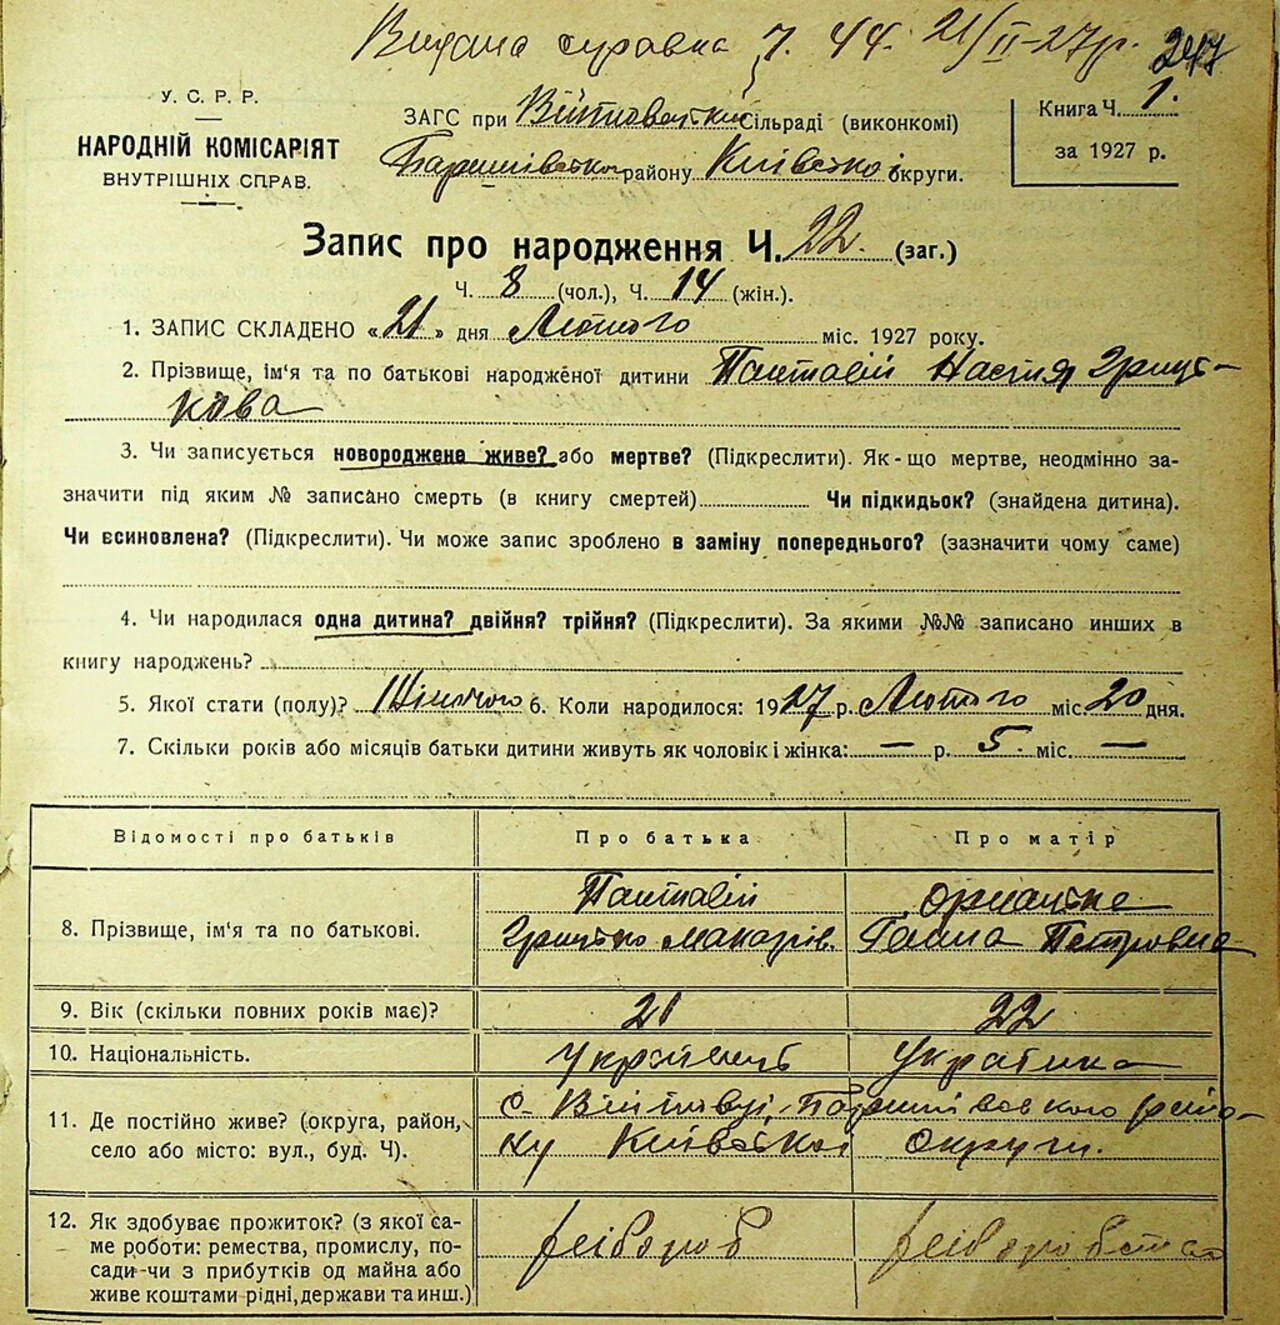 Видана справка ч. 44. 21/II-27р. 247
У. С. Р. Р.
НАРОДНІЙ КОМІСАРІЯТ
ВНУТРІШНІХ СПРАВ.
ЗАГС при Війтовецькій Сільраді (виконкомі)
Баришівсько району Київсько округи.
Книга Ч. 1.
за 1927 р.
Запис про народження Ч. 22. (заг.)
Ч. 8 (чол.), Ч. 14 (жін.).
1. ЗАПИС СКЛАДЕНО «21» дня Лютого міс. 1927 року.
2. Прізвище, ім'я та по батькові народженої дитини Панталій Настя Грицъ-
кова
3. Чи записується новороджене живе? або мертве? (Підкреслити). Як-що мертве, неодмінно за-
значити під яким № записано смерть (в книгу смертей) Чи підкидьок? (знайдена дитина).
Чи єсиновлена? (Підкреслити). Чи може запис зроблено в заміну попереднього? (зазначити чому саме)
4. Чи народилася одна дитина? двійня? трійня? (Підкреслити). За якими №№ записано инших в
книгу народжень?
5. Якої стати (полу)? Жіночого 6. Коли народилося: 1927 р. Лютого міс. 20 дня.
7. Скільки років або місяців батьки дитини живуть як чоловік і жінка: — р. 5. міс. —
Відомості про батьків Про батька Про матір
8. Прізвище, ім'я та по батькові.
Панталій
Грицько Макарів.
Ганна Петровна
9. Вік (скільки повних років має)? 21 22
10. Національність. Українець Українка
11. Де постійно живе? (округа, район,
село або місто: вул., буд. Ч).
с. Війтовці, Баришівського райо-
ну Київської округи.
12. Як здобуває прожиток? (з якої са-
ме роботи: ремества, промислу, по-
сади-чи з прибутків од майна або
живе коштами рідні, держави та инш.)
хлібороб
хліборобство